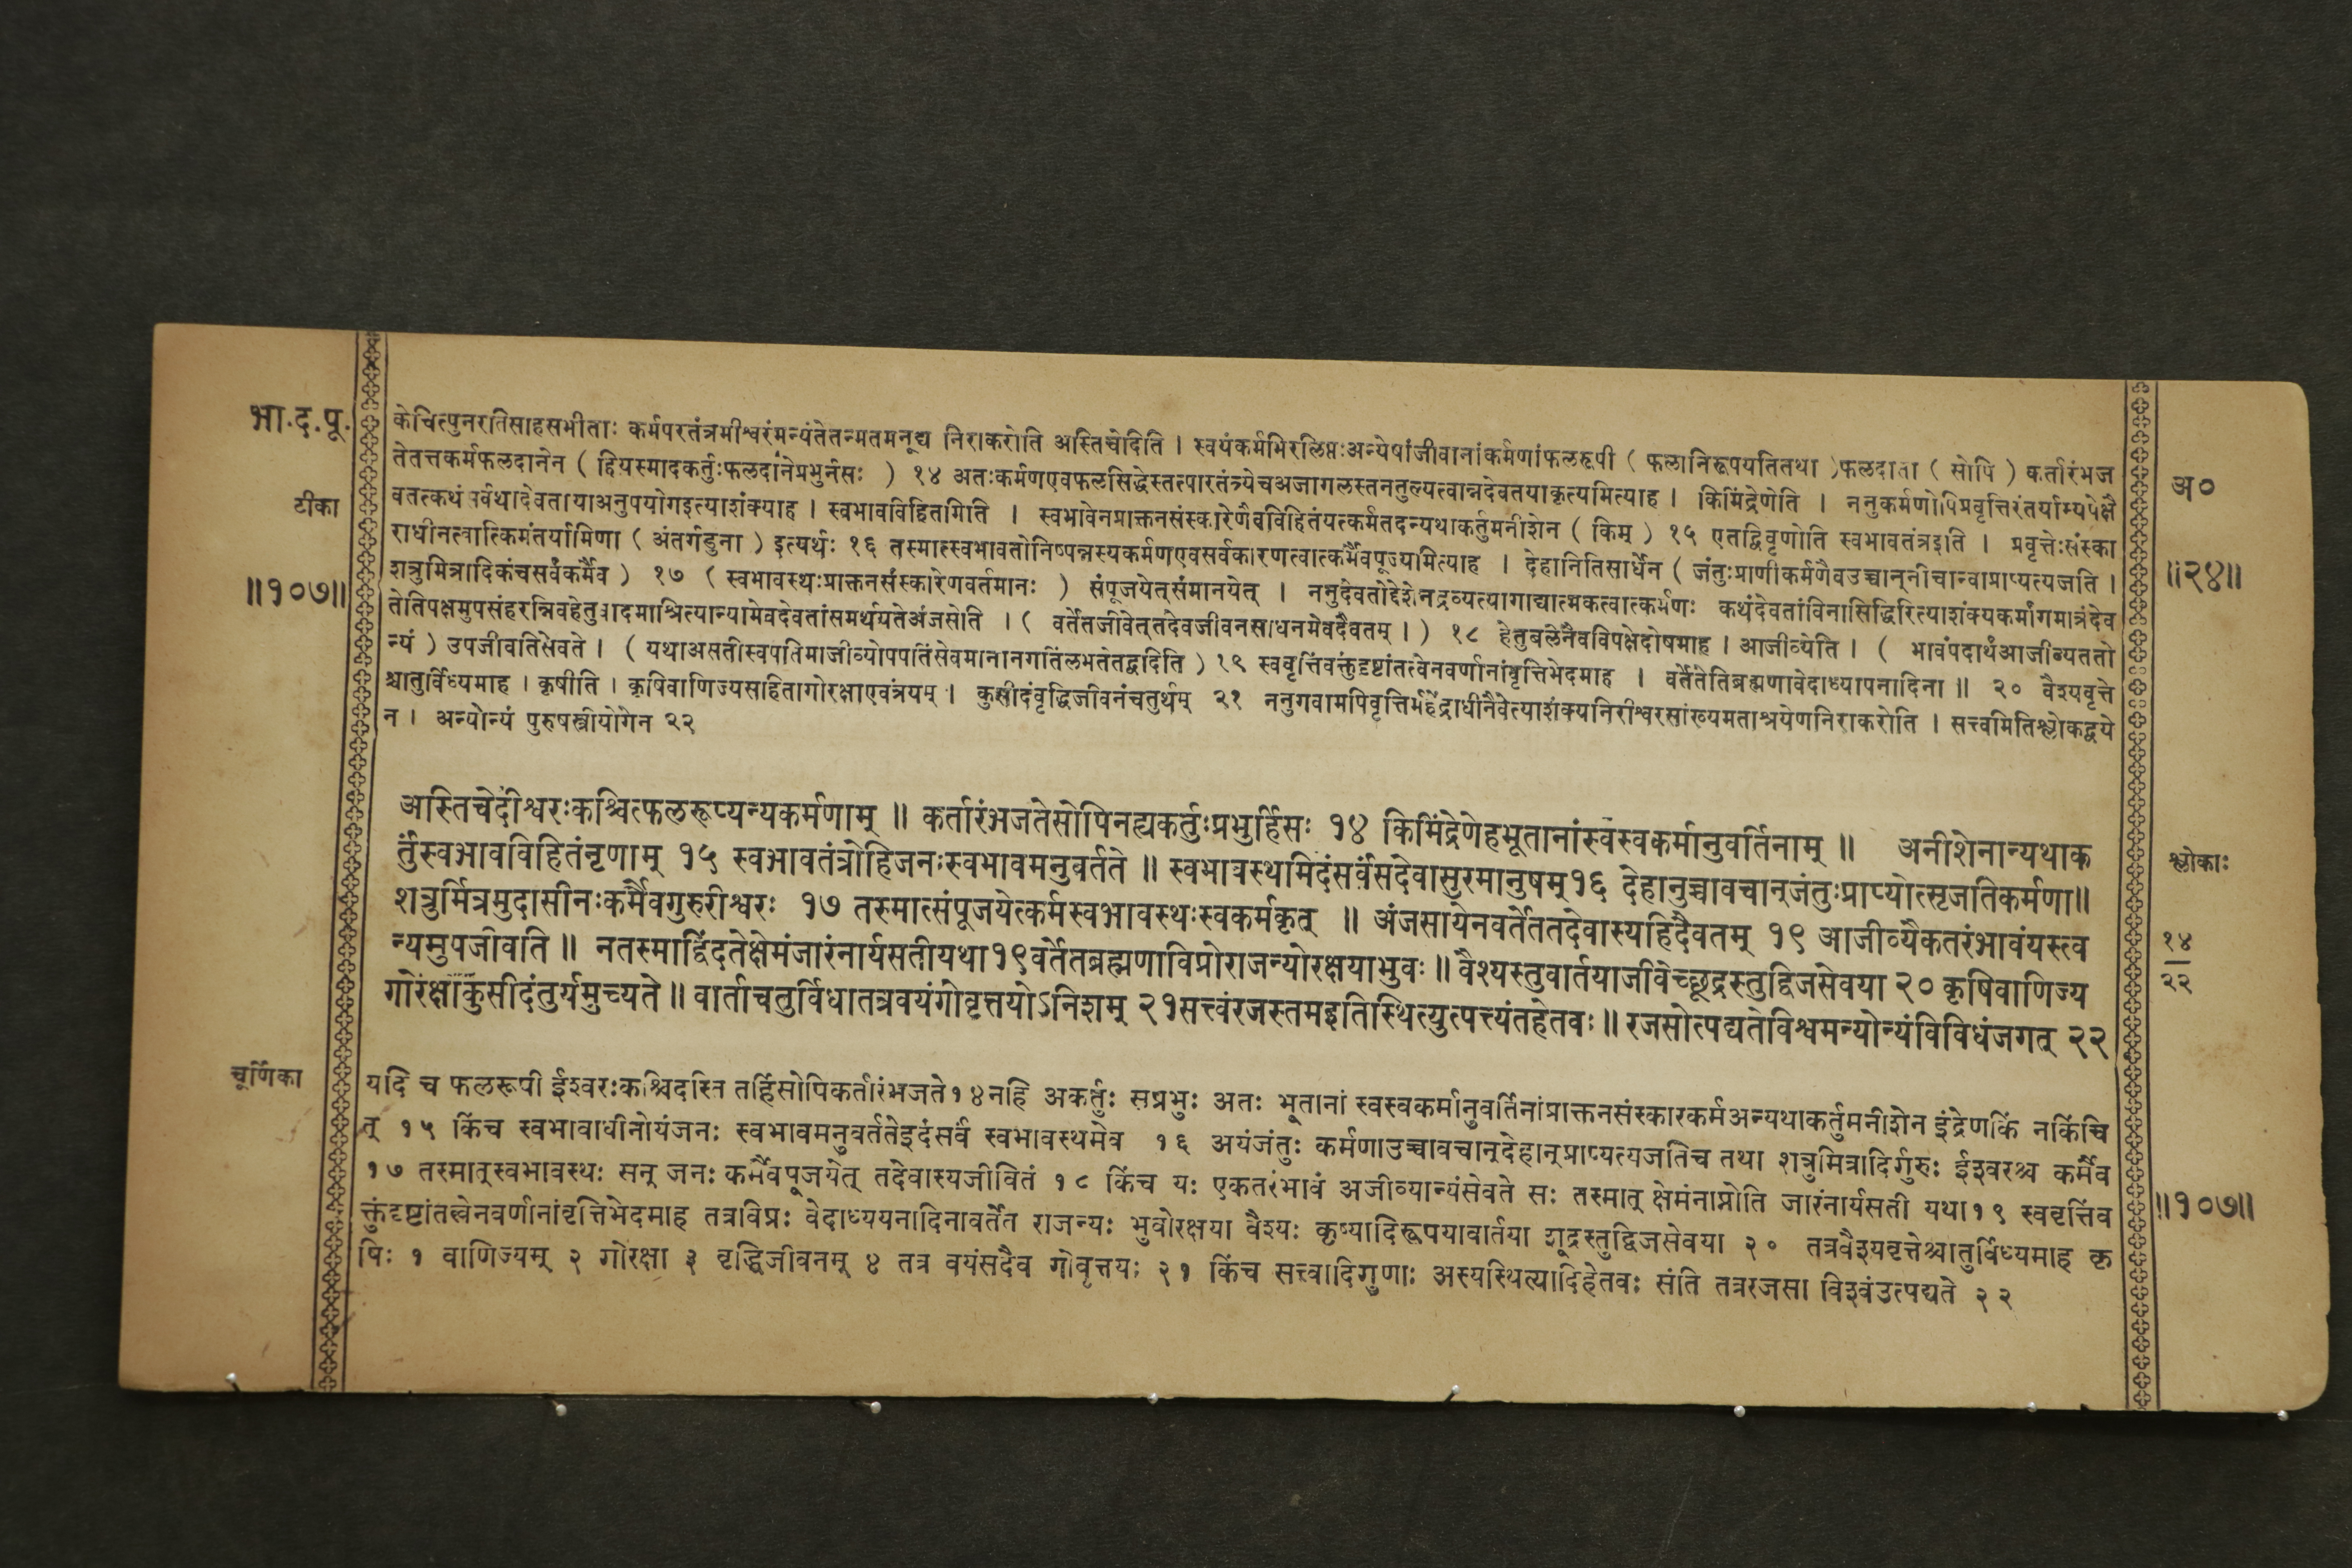 भा.द.पू.
टीका
॥१०७॥
केचित्पुनरतिसाहसभीताः कर्मपरतंत्रमीश्वरंमन्यंतेतन्मतमनूद्य निराकरोति अस्तिचेदिति । स्वयंकर्मभिरलिप्तःअन्येषांजीवानांकर्मणांफलरूपी ( फलानिरूपयतितथा )फलदाता ( सोपि ) कर्तारंभज
तेतत्तकर्मफलदानेन ( हियस्मादकर्तुःफलदानेप्रभुर्नसः ) १४ अतःकर्मणएवफलसिद्धेस्तत्पारतंत्र्येचअजागलस्तनतुल्यत्वान्नदेवतयाकृत्यमित्याह । किमिंद्रेणेति । ननुकर्मणोपिप्रवृत्तिरंतर्याम्यपेक्षै
वतत्कथंसर्वथादेवतायाअनुपयोगइत्याशंक्याह । स्वभावविहितमिति । स्वभावेनप्राक्तनसंस्कारेणैवविहितंयत्कर्मतदन्यथाकर्तुमनीशेन ( किम् ) १५ एतद्विवृणोति स्वभावतंत्रइति । प्रवृत्तेःसंस्का
राधीनत्वात्किमंतर्यामिणा ( अंतर्गडुना ) इत्यर्थः १६ तस्मात्स्वभावतोनिष्पन्नस्यकर्मणएवसर्वकारणत्वात्कर्मैवपूज्यमित्याह । देहानितिसार्धेन ( जंतुःप्राणीकर्मणैवउच्चान्नीचान्वाप्राप्यत्यजति ।
शत्रुमित्रादिकंचसर्वंकर्मैव ) १७ ( स्वभावस्थःप्राक्तनसंस्कारेणवर्तमानः ) संपूजयेत्संमानयेत् । ननुदेवतोद्देशेनद्रव्यत्यागाद्यात्मकत्वात्कर्मणः कथंदेवतांविनासिद्धिरित्याशंक्यकर्मांगमात्रंदेव
तेतिपक्षमुपसंहरन्निवहेतुवादमाश्रित्यान्यामेवदेवतांसमर्थयतेअंजसेति । ( वर्तेतजीवेत्तदेवजीवनसाधनमेवदैवतम् । ) १८ हेतुबलेनैवविपक्षेदोषमाह । आजीव्येति । ( भावंपदार्थंआजीव्यततो
न्यं ) उपजीवतिसेवते । ( यथाअसतीस्वपतिमाजीव्योपपतिंसेवमानानगतिंलभतेतद्वदिति ) १९ स्ववृत्तिंवक्तुंदृष्टांतत्वेनवर्णानांवृत्तिभेदमाह । वर्तेतेतिब्रह्मणावेदाध्यापनादिना ॥ २० वैश्यवृत्ते
श्चातुर्विध्यमाह । कृषीति । कृषिवाणिज्यसहितागोरक्षाएवंत्रयम् । कुसीदंवृद्धिजीवनंचतुर्थम् २१ ननुगवामपिवृत्तिर्महेंद्राधीनैवेत्याशंक्यनिरीश्वरसांख्यमताश्रयेणनिराकरोति । सत्त्वमितिश्लोकद्वये
न । अन्योन्यं पुरुषस्त्रीयोगेन २२
अ०
॥२४॥
अस्तिचेदीश्वरःकश्चित्फलरूप्यन्यकर्मणाम् ॥ कर्तारंभजतेसोपिनह्यकर्तुःप्रभुर्हिसः १४ किमिंद्रेणेहभूतानांस्वस्वकर्मानुवर्तिनाम् ॥ अनीशेनान्यथाक
र्तुंस्वभावविहितंनृणाम् १५ स्वभावतंत्रोहिजनःस्वभावमनुवर्तते ॥ स्वभावस्थमिदंसर्वंसदेवासुरमानुषम्१६ देहानुच्चावचान्जंतुःप्राप्योत्सृजतिकर्मणा॥
शत्रुर्मित्रमुदासीनःकर्मैवगुरुरीश्वरः १७ तस्मात्संपूजयेत्कर्मस्वभावस्थःस्वकर्मकृत् ॥ अंजसायेनवर्तेततदेवास्यहिदैवतम् १९ आजीव्यैकतरंभावंयस्त्व
न्यमुपजीवति ॥ नतस्माद्विंदतेक्षेमंजारंनार्यसतीयथा१९वर्तेतब्रह्मणाविप्रोराजन्योरक्षयाभुवः ॥ वैश्यस्तुवार्तयाजीवेच्छूद्रस्तुद्विजसेवया २० कृषिवाणिज्य
गोरक्षाकुसीदंतुर्यमुच्यते ॥ वार्ताचतुर्विधातत्रवयंगोवृत्तयोऽनिशम् २१सत्त्वंरजस्तमइतिस्थित्युत्पत्त्यंतहेतवः ॥ रजसोत्पद्यतेविश्वमन्योन्यंविविधंजगत् २२
श्लोकाः
१४
२२
चूर्णिका
यदि च फलरूपी ईश्वरःकश्चिदस्ति तर्हिसोपिकर्तारंभजते१४नहि अकर्तुः सप्रभुः अतः भूतानां स्वस्वकर्मानुवर्तिनांप्राक्तनसंस्कारकर्मअन्यथाकर्तुमनीशेन इंद्रेणकिं नकिंचि
त् १५ किंच स्वभावाधीनोयंजनः स्वभावमनुवर्ततेइदंसर्वं स्वभावस्थमेव १६ अयंजंतुः कर्मणाउच्चावचान्देहान्प्राप्यत्यजतिच तथा शत्रुमित्रादिर्गुरुः ईश्वरश्च कर्मैव
१७ तस्मात्स्वभावस्थः सन् जनः कर्मैवपूजयेत् तदेवास्यजीवितं १८ किंच यः एकतरंभावं अजीव्यान्यंसेवते सः तस्मात् क्षेमंनाप्नोति जारंनार्यसती यथा१९ स्ववृत्तिंव
क्तुंदृष्टांतत्वेनवर्णानांवृत्तिभेदमाह तत्रविप्रः वेदाध्ययनादिनावर्तेत राजन्यः भुवोरक्षया वैश्यः कृष्यादिरूपयावार्तया शूद्रस्तुद्विजसेवया २० तत्रवैश्यवृत्तेश्चातुर्विध्यमाह कृ
षिः १ वाणिज्यम् २ गोरक्षा ३ वृद्धिजीवनम् ४ तत्र वयंसदैव गोवृत्तयः २१ किंच सत्त्वादिगुणाः अस्यस्थित्यादिहेतवः संति तत्ररजसा विश्वंउत्पद्यते २२
॥१०७॥